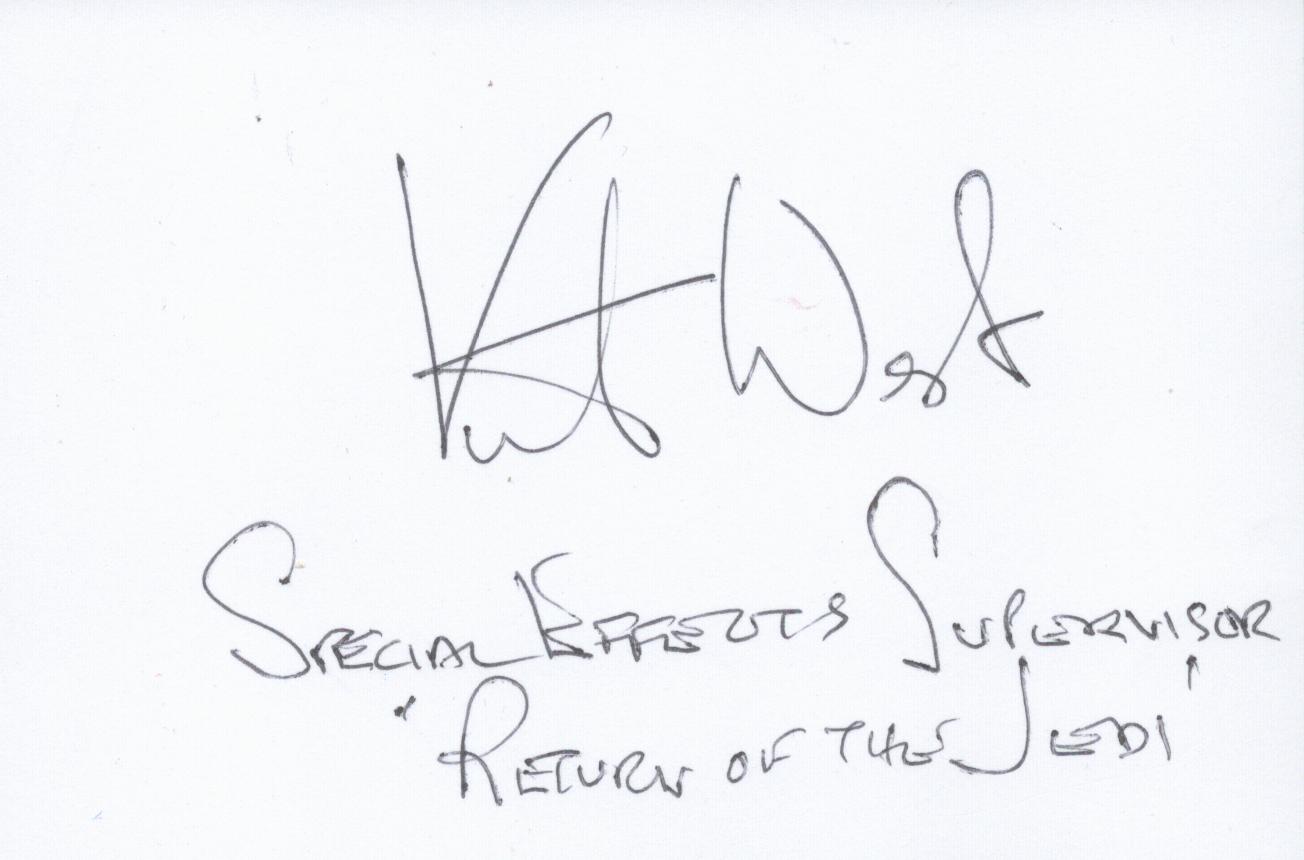 Kit West
Special Effects Supervisor
'Return of the Jedi'